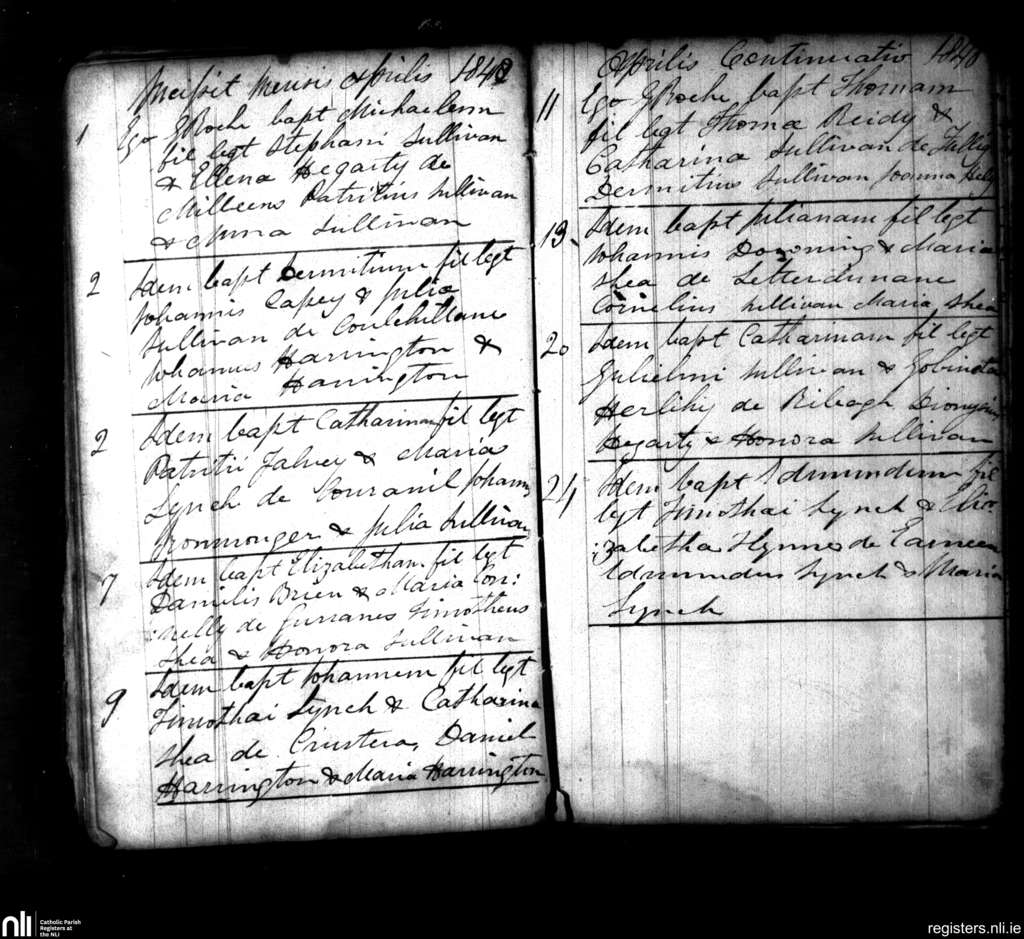 Incipit Mensis Aprilis 1848
1 Ego GRoche bapt Michaelem
fil legt Stephani Sullivan
& Ellena Hegarty de
Milleens Patritius Sullivan
& Anna Sullivan
2 Idem bapt Dermitium fil legt
Johannis Casey & Julia
Sullivan de Coulehillane
Johannes Harrington &
Maria Harrington
2 Idem bapt Catharinam fil legt
Patritii Falvey & Maria
Lynch de Johannes
Ironmonger & Julia Sullivan
7 Idem bapt Elizabetham fil legt
Danielis Brien & Maria Con:
:nelly de Gurranes Timotheus
Shea & Honora Sullivan
9 Idem bapt Johannem fil legt
Timothai Lynch & Catharina
Shea de Crustera, Daniel
Harrington & Maria Harrington
Aprilis Continuatio 1848
11 Ego GRoche bapt Thomam
fil legt Thomæ Reidy &
Catharina Sullivan de
Dermitius Sullivan Joanna
13 Idem bapt Julianam fil legt
Johannis Downing & Maria
Shea de Letterdunane
Cornelius Sullivan Maria Shea
20 Idem bapt Catharinam fil legt
Gulielmi Sullivan & Gobinata
Herlihy de Ribagh Dionysius
Hegarty & Honora Sullivan
24 Idem bapt Edmundum fil
legt Timothai Lynch & Eliz:
:zabetha Flynn de
Edmundus Lynch & Maria
Lynch
nli
Catholic Parish
Registers at
the NLI
registers.nli.ie